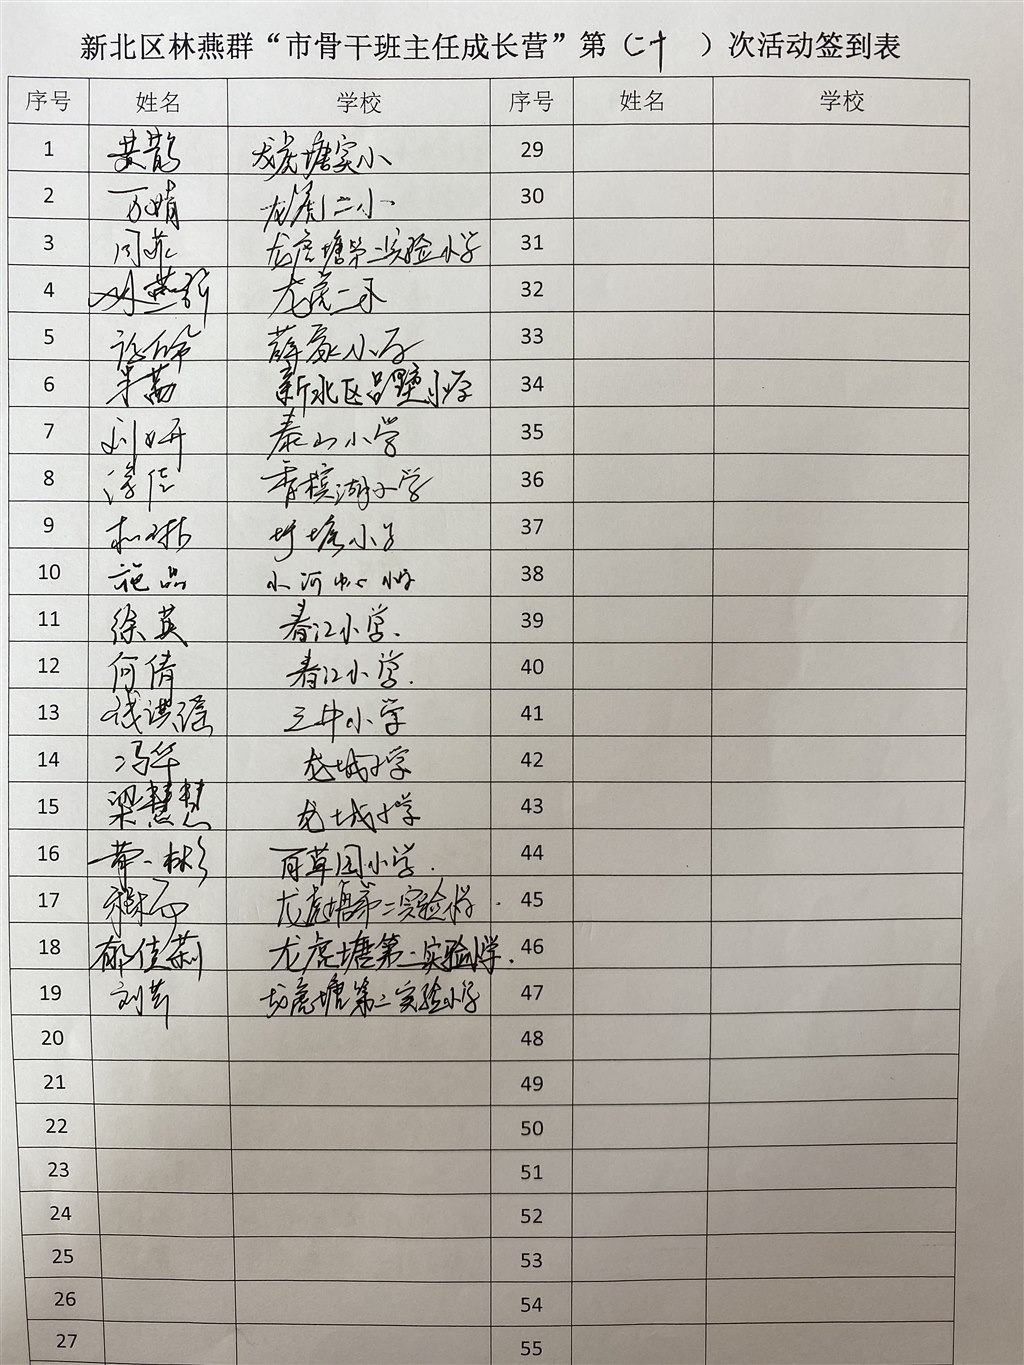 新北区林燕群“市骨干班主任成长营”第（二十）次活动签到表
序号 姓名 学校 序号 姓名 学校
1 黄鹊 龙虎塘实小 29
2 万婧 龙虎二小 30
3 闫菲 龙虎塘第二实验小学 31
4 林燕群 龙虎二小 32
5 薛家小学 33
6 朱荔 新北区吕墅小学 34
7 刘妍 泰山小学 35
8 香槟湖小学 36
9 圩塘小学 37
10 施品 小河中心小学 38
11 徐英 春江小学. 39
12 何倩 春江小学. 40
13 钱洪瑶 三井小学 41
14 冯华 龙城小学 42
15 梁慧慧 龙城小学 43
16 百草园小学. 44
17 龙虎塘第二实验小学. 45
18 郁佳莉 龙虎塘第二实验小学. 46
19 刘芳 龙虎塘第二实验小学 47
20 48
21 49
22 50
23 51
24 52
25 53
26 54
27 55